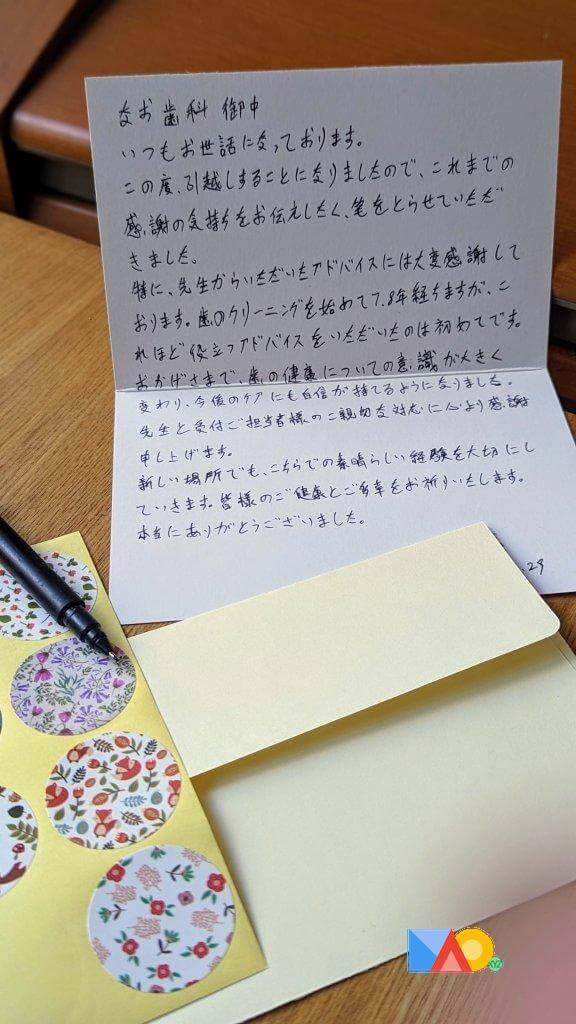 なお歯科 御中
いつもお世話になっております。
この度、引越しすることになりましたので、これまでの
感謝の気持ちをお伝えしたく、筆をとらせていただ
きました。
特に、先生からいただいたアドバイスには大変感謝して
おります。歯のクリーニングを始めて7.8年経ちますが、こ
れほど役立つアドバイスをいただいたのは初めてです。
おかげさまで、歯の健康についての意識が大きく
変わり、今後のケアにも自信が持てるようになりました。
先生と受付ご担当者様のご親切な対応に心より感謝
申し上げます。
新しい場所でも、こちらでの素晴らしい経験を大切にし
ていきます。皆様のご健康とご多幸をお祈りいたします。
本当にありがとうございました。
.29